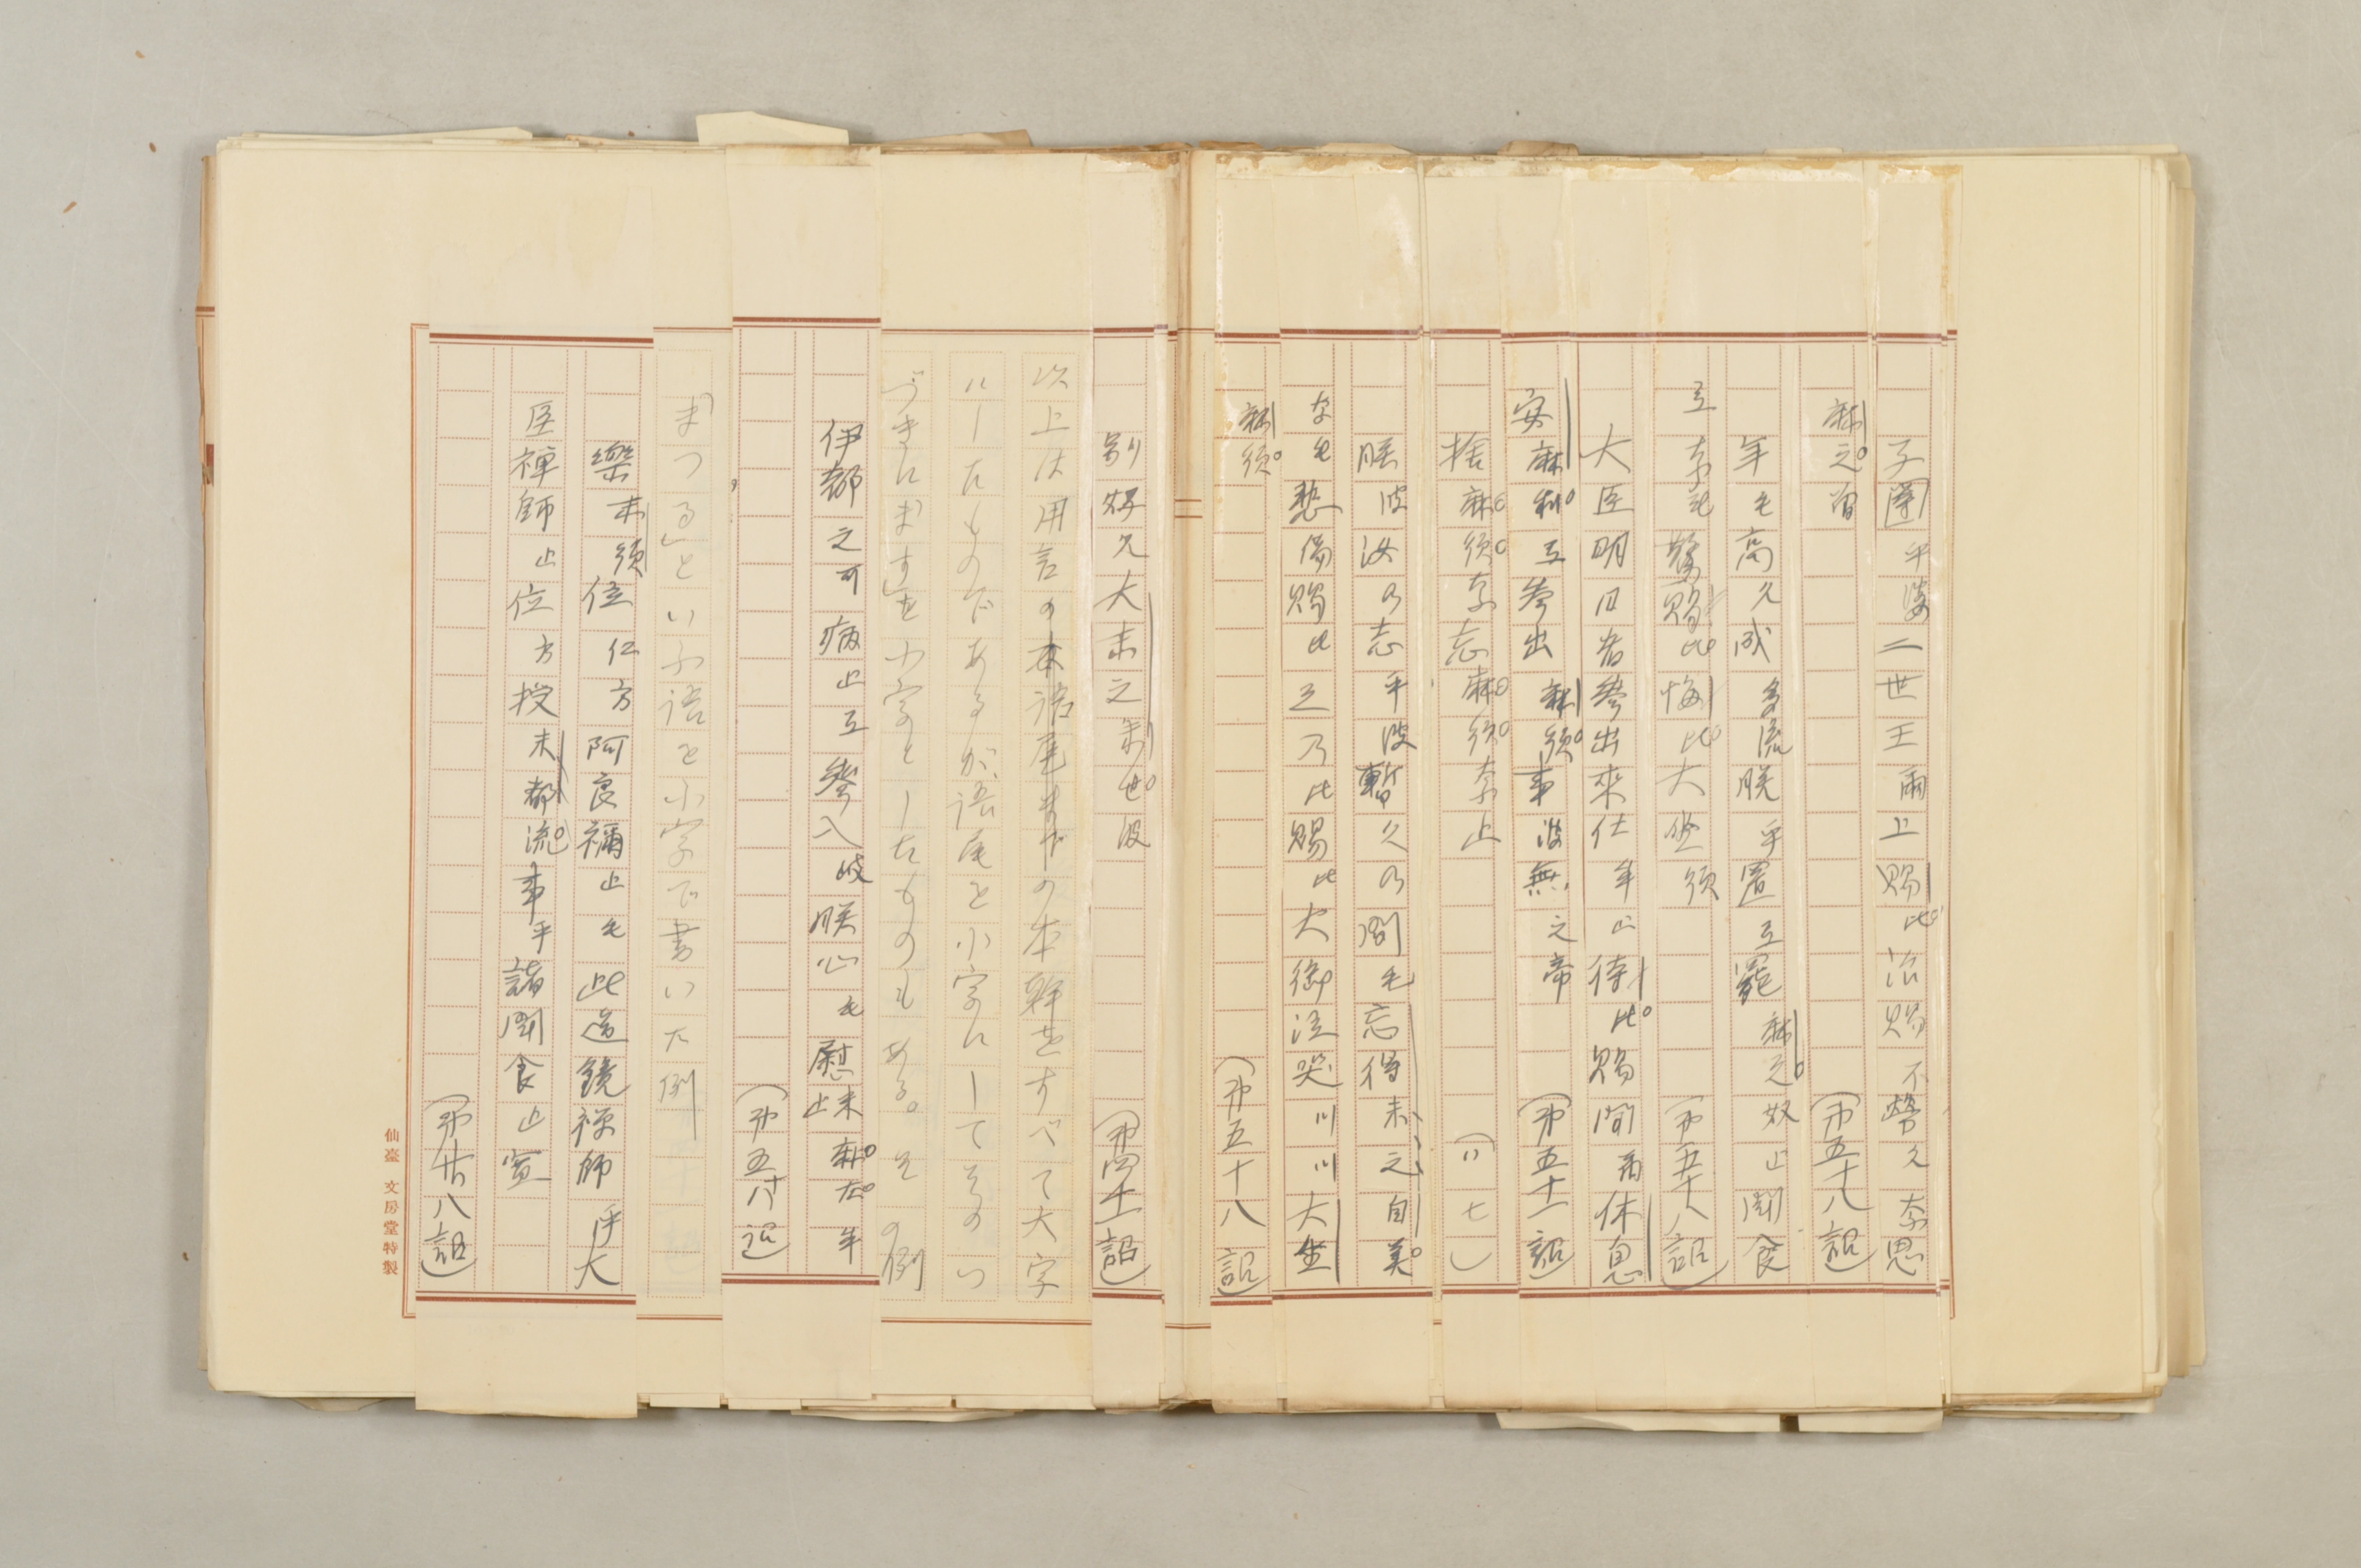 子圉乎婆二世王爾上賜比治賜不勞久奈思
麻之曽　(第五十八詔)
年毛高久成多流朕乎置弖罷麻之奴止聞食
弖奈毛驚賜比悔比大坐須　(第五十八詔)
大臣明日者參出來仕牟止待比賜間爾休息
安麻利弖參出麻須事波無之帝　(第五十一詔)
捨麻須奈志麻須奈止　(〃〃)
朕波汝乃志乎波暫久乃間毛忘得未之自美
なも悲傷賜比之乃比賜比大御泣哭川川大坐
麻須。　(第五十八詔)
別好久大末之末世波　(第四十一詔)
以上は用言の本語尾までの本幹をすべて大字
にしたものであるが、語尾を小字にしてそのつ
づきに「ます」を小字としたものもある。その例
伊都之可病止弖參入岐朕心毛慰未麻左牟
止　(第五十八詔)
「まつる」といふ語を小字で書いた例
樂末須位仁方阿良禰止毛此道鏡禅師乎大
臣禅師止位方授末都流事乎諸聞食止宣
(第廿八詔)
仙臺 文房堂特製